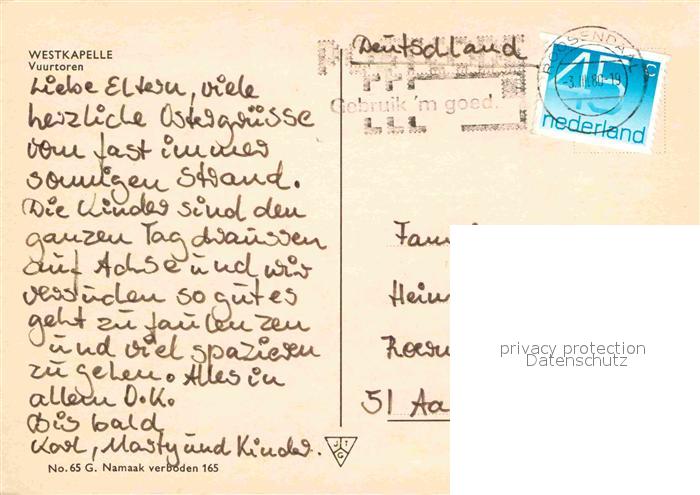 WESTKAPELLE
Vuurtoren
Liebe Eltern, viele
herzliche Ostergrüsse
vom fast immer
sonnigen Strand.
Die Kinder sind den
ganzen Tag draussen
auf Achse und wir
versuchen so gut es
geht zu faulenzen
und viel spazieren
zu gehen. Alles in
allem O.K.
Bis bald
Karl, Marty und Kinder.
No. 65 G. Namaak verboden 165
JTG
Deutschland
Gebruik 'm goed.
ROOSENDAAL
-3.III.80-19
45 c
nederland
Fam
Hein
51 Aa
privacy protection
Datenschutz